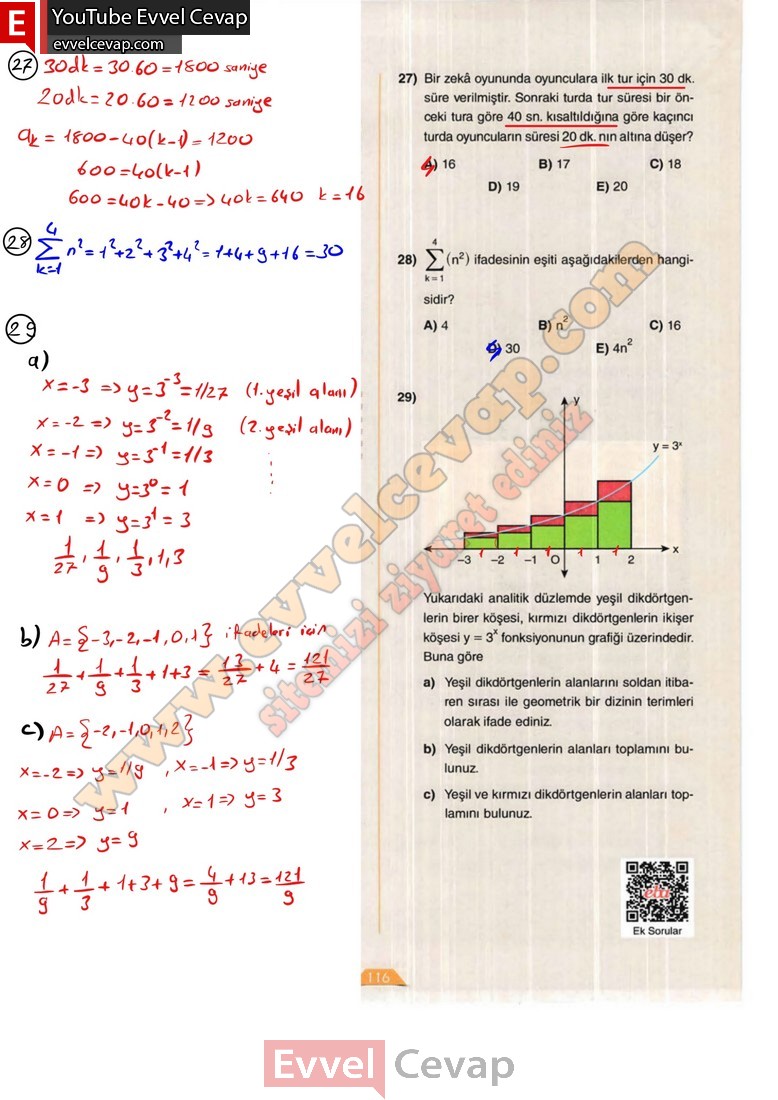 E YouTube Evvel Cevap
evvelcevap.com
27 30dk = 30.60 = 1800 saniye
20dk = 20.60 = 1200 saniye
aₖ = 1800-40(k-1) = 1200
600 = 40(k-1)
600 = 40k-40 => 40k = 640 k = 16
28 4
∑ n² = 1²+2²+3²+4² = 1+4+9+16 = 30
k=1
29
a)
x=-3 => y=3⁻³=1/27 (1.yeşil alanı)
x=-2 => y=3⁻²=1/9 (2.yeşil alanı)
x=-1 => y=3⁻¹=1/3
x=0 => y=3⁰=1
x=1 => y=3¹=3
1/27, 1/9, 1/3, 1, 3
b) A={-3,-2,-1,0,1} ifadeleri için
1/27 + 1/9 + 1/3 + 1+3 = 13/27 + 4 = 121/27
c) A={-2,-1,0,1,2}
x=-2 => y=1/9, x=-1 => y=1/3
x=0 => y=1, x=1 => y=3
x=2 => y=9
1/9 + 1/3 + 1+3+9 = 4/9 + 13 = 121/9
27) Bir zekâ oyununda oyunculara ilk tur için 30 dk.
süre verilmiştir. Sonraki turda tur süresi bir ön-
ceki tura göre 40 sn. kısaltıldığına göre kaçıncı
turda oyuncuların süresi 20 dk. nın altına düşer?
A) 16 B) 17 C) 18
D) 19 E) 20
28) 4
∑ (n²) ifadesinin eşiti aşağıdakilerden hangi-
k = 1
sidir?
A) 4 B) n² C) 16
D) 30 E) 4n²
29)
y
y = 3ˣ
1 1 1 1 1
-3 -2 -1 O 1 2 x
Yukarıdaki analitik düzlemde yeşil dikdörtgen-
lerin birer köşesi, kırmızı dikdörtgenlerin ikişer
köşesi y = 3ˣ fonksiyonunun grafiği üzerindedir.
Buna göre
a) Yeşil dikdörtgenlerin alanlarını soldan itiba-
ren sırası ile geometrik bir dizinin terimleri
olarak ifade ediniz.
b) Yeşil dikdörtgenlerin alanları toplamını bu-
lunuz.
c) Yeşil ve kırmızı dikdörtgenlerin alanları top-
lamını bulunuz.
eba
Ek Sorular
116
www.evvelcevap.com
sitemizi ziyaret ediniz
Evvel Cevap